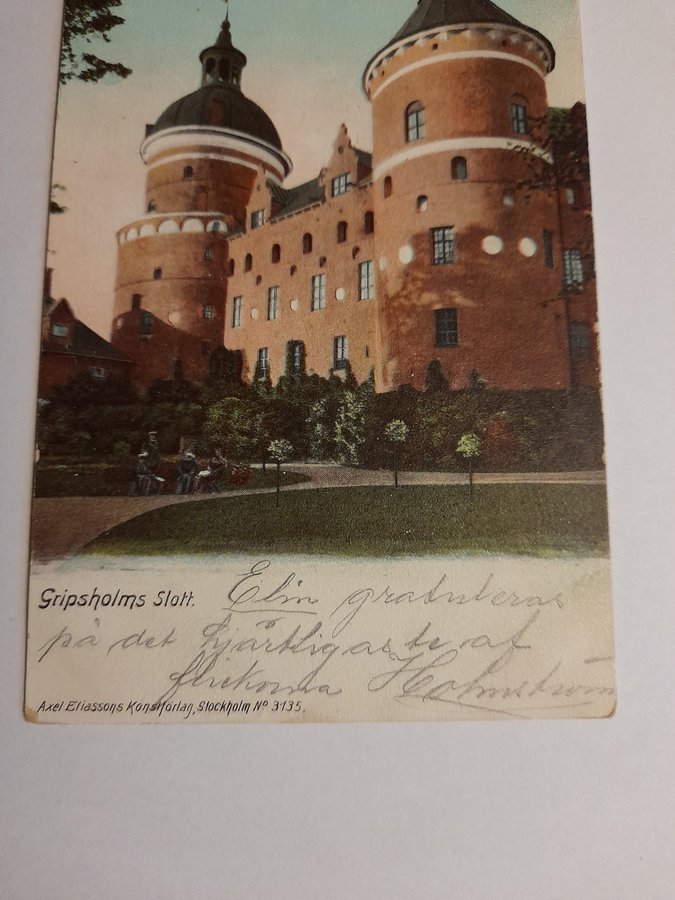 Gripsholms Slott.
Elin gratuleras
på det hjärtligaste af
flickorna Holmström
Axel Eliassons Konstförlag, Stockholm Nº 3135.